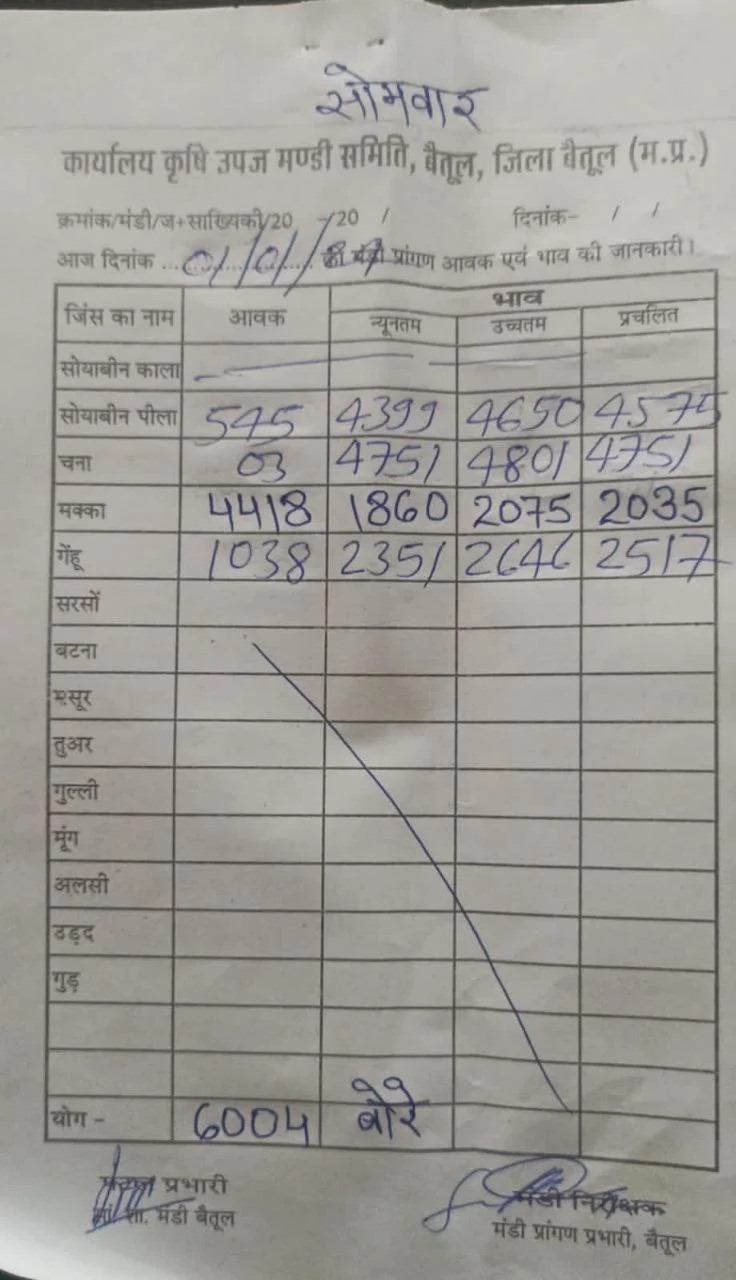 सोमवार
कार्यालय कृषि उपज मण्डी समिति, बैतूल, जिला बैतूल (म.प्र.)
क्रमांक/मंडी/ज+साख्यिकी/20 /20 / दिनांक- / /
आज दिनांक ...01/01/... की मंडी प्रांगण आवक एवं भाव की जानकारी।
जिंस का नाम आवक भाव
न्यूनतम उच्चतम प्रचलित
सोयाबीन काला — —
सोयाबीन पीला 545 4399 4650 4575
चना 03 4751 4801 4751
मक्का 4418 1860 2075 2035
गेंहू 1038 2351 2646 2517
सरसों
बटना
मसूर
तुअर
गुल्ली
मूंग
अलसी
उड़द
गुड़
योग - 6004 बोरे
प्रभारी
शा. मंडी बैतूल
मंडी निरीक्षक
मंडी प्रांगण प्रभारी, बैतूल